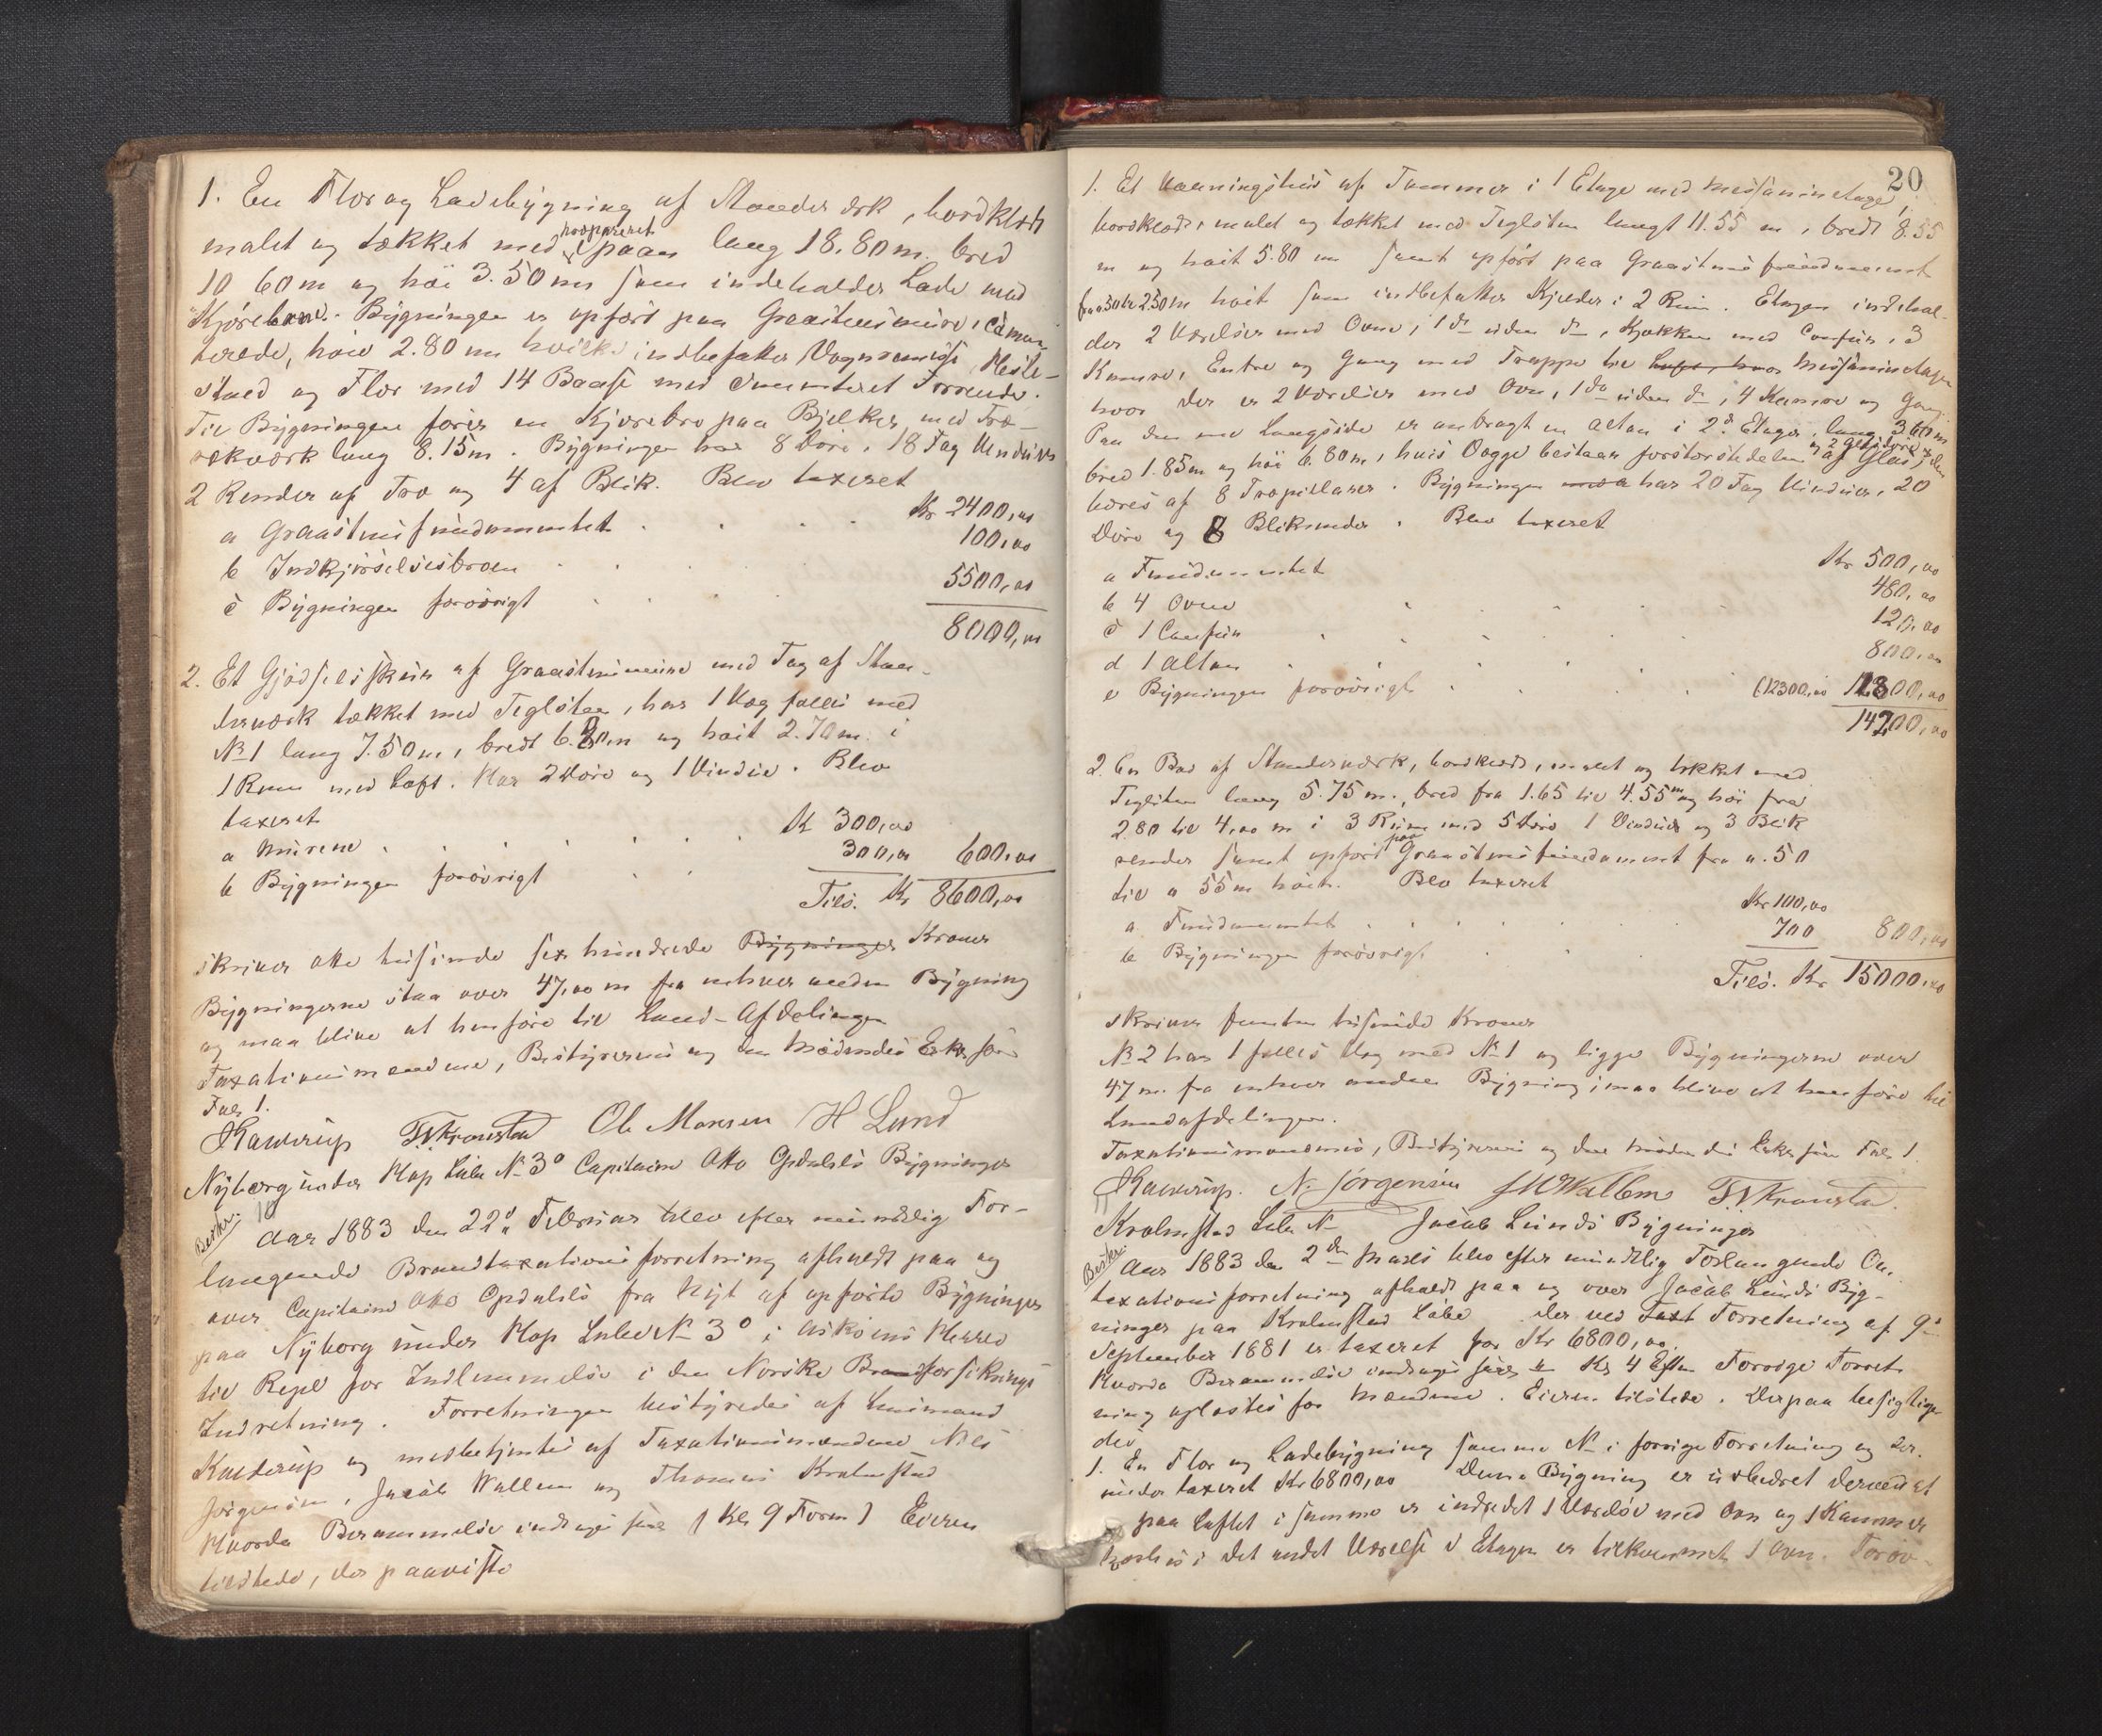 1. En Flor og Ladebygning af Stænderværk, bordklædt
malet og tækket med rhoppreret spaan lang 18.80 m. bred
10 60 m og høi 3.50 m som indeholder Lade med
Kjørebane. Bygningen er opført paa Graastensmure, cemen-
terede, høie 2.80 m hvilke indbefatter Vognremise, Heste-
stald og Flor med 14 Baase med cementeret
Til Bygningen fører en Kjørebro paa Bjelker med Træ-
rekværk lang 8.15 m. Bygningen har 8 Døre, 18 Fag Vinduer
2 Render af Træ og 4 af Blik. Blev taxeret
a Graastensfundamentet . . . . Kr 2400,00
b Indkjørselsbroen . . . 100,00
c Bygningen forøvrigt . . . 5500,00
8000,00
2. Et Gjødselsskur af Graastensmure med Tag af Stæn-
derværk tækket med Teglsten, har 1 Væg fælles med
No 1 lang 7.50 m, bredt 6.80 m og høit 2.70 m. i
1 Rum med Loft. Har 2 Døre og 1 Vindue. Blev
taxeret
a Murene . . . . . . K 300,00
b Bygningen forøvrigt . . 300,00 600,00
Tils. Kr 8600,00
skriver otte tusinde sex hundrede Bygninger Kroner
Bygningerne staa over 47,00 m fra enhver anden Bygning
og maa blive at henføre til Land-Afdelingen
Taxationsmændene, Bestyrerens og den mødendes Eksp som
Fol 1.
Kalderup T. Kronstad Ole Monsen H Lund
Nyborg under Hop Labe No 3 a Capitaine Otto Opdahls Bygninger
Beskr.
Aar 1883 den 22de Februar blev efter mundtlig For-
langende Brandtaxationsforretning afholdt paa og
over Capitaine Otto Opdahls fra Nyt af opførte Bygninger
paa Nyborg under Hop Labe No 3 a i Askøens Herred
til Regel for Indlemmelse i den Norske Brandforsikrings
Indretning. Forretningen bestyredes af Lensmand
Kalderup og medbetjentes af Taxationsmændene Nils
Jørgensen, Jacob Wallem og Thomas Krohnstad
Hvorda Berammelse indtages her (Kl 9 Form) Eieren
tilstede, der paaviste
20
1. Et Vaaningshus af Tømmer i 1 Etage med Messaninetage,
bordklædt, malet og tækket med Teglsten langt 11.55 m, bredt 8.55
m og høit 5.80 m samt opført paa Graastensfundament
fra 0.50 til 2.50 m høit som indbefatter Kjelder i 2 Rum. Etagen indehol-
der 2 Værelser med Ovne, 1 do uden do, Kjøkken med Comfur, 3
Kamre, Entre og Gang med Trappe til Loft, hvor Messaninetagen
hvor der er 2 Værelser med Ovn, 1 do uden do, 4 Kamre og Gang.
Paa den ene Langside er anbragt en Altan i 2 Etager, lang 3.60 m
bred 1.85 m og høi 6.80 m, hvis Vægge bestaar forstørstedelen af Glas, og 2 Glasdøre, den
bæres af 8 Træpillarer. Bygningen med har 20 Fag Vinduer, 20
Døre og 8 Blikrender. Blev taxeret
a Fundamentet Kr 500,00
b 4 Ovne . . . 480,00
c 1 Comfur . . . . 120,00
d 1 Altan . . . . 800,00
e Bygningen forøvrigt . . . (12300,00 12300,00
14200,00
2. En Bod af Stænderværk, bordklædt, malet og tækket med
Teglsten lang 5.75 m., bred fra 1.65 til 4.55 m og høi fra
2.80 til 4,00 m i 3 Rum med 5 Døre 1 Vindue og 3 Blik
render samt opført paa Graastensfundament fra 0.50
til 0 55 m høit. Blev taxeret
a Fundamentet . . . . . Kr 100,00
b Bygningen forøvrigt . . 700 800,00
Tils. Kr 15000,00
skriver femten tusinde Kroner
No 2 har 1 fælles Væg med No 1 og ligge Bygningerne over
47 m. fra enhver anden Bygning, maa blive at henføre til
Landafdelingen.
Taxationsmændenes, Bestyrerens og den mødendes Eksp som Fol 1.
Kalderup. N. Jørgensen J M Wallem T. Kronstad.
Krohnstad Labe No Jacob Lunds Bygninger
Beskr.
Aar 1883 den 2den Marts blev efter mundtlig Forlangende Om-
taxationsforretning afholdt paa og over Jacob Lunds Byg-
ninger paa Krohnstad Labe der ved Taxt Forretning af 9de
September 1881 er taxeret for Kr 6800,00.
Hvorda Berammelse indtages her Kl 4 Eftm Forrige Forret-
ning oplæstes for Mændene. Eieren tilstede. Derpaa besigtige-
des
1. En Flor og Ladebygning samme No i forrige Forretning og der-
under taxeret Kr 6800,00 Denne Bygning er udbedret derved at
paa Loftet i samme er indredet 1 Værelse med Ovn og 1 Kammer
i det andet Værelse i Etagen er tilkommet 1 Ovn. Forøv-